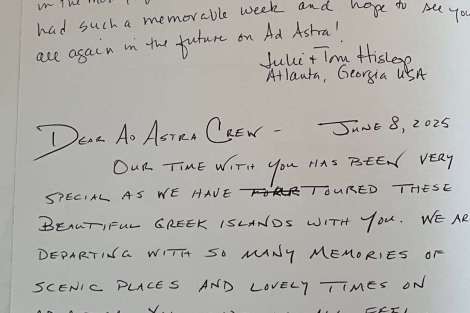 had such a memorable week and hope to see you
all again in the future on Ad Astra!
Julie + Tom Hislop
Atlanta, Georgia USA
Dear Ad Astra Crew - June 8, 2025
Our time with you has been very
special as we have toured these
beautiful Greek islands with you. We are
departing with so many memories of
scenic places and lovely times on